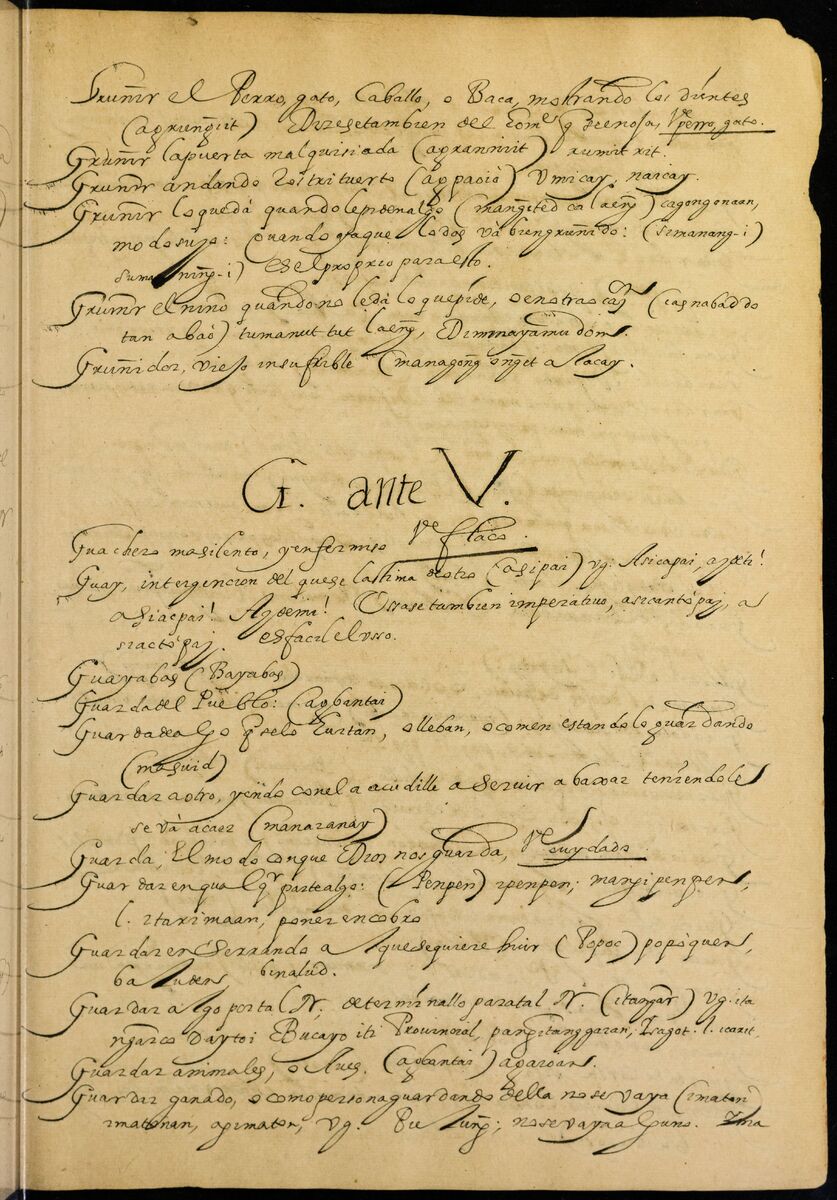 Gruñir el Perro, gato, Caballo, o Baca, mostrando los dientes
(agrungiit) Dizese tambien del q̃ se enoja, Vᵉ perro, gato.
Gruñir la puerta mal quisiada (agranniit) rumitrit.
Gruñir andando Zostrituerto (agpaoió) Umicay, naicay.
Gruñir lo que dá quando le piden algo (mangited ca laeng̃) cagongonaan,
modo suyo: Quando ya que lo dos vá bien gruñido: (Semanang-i)
suma ning-i) es el proprio para esto.
Gruñir el niño quando no le dá lo que pide, o en otras (
tan abaó) tumanut tut laeng̃,
Gruñidor, viejo insufrible (managong̃ onget a lacay.
G. ante V.
Guachero masilento, y enfermiso Vᵉ flaco.
Guay, intergencion del que se lastima de otro (asipai) vg: Asicapai, ay de ti!
asiacpai! Ay de mi! Ussase tambien imperativo, asicantó pay, a
siactó pay. es facil el usso.
Guayabas (Bayabas)
Guarda del Pueblo: (agbantai)
Guarda de algo q̃ se lo hurtan, o lleban, o comen estandolo guardando
(masuid)
Guardar a otro, yendo con el a acudille a servir a baxar teniendole
se vá a caer (manaranay)
Guarda, El modo con que Dios nos guarda, Vᵉ cuydado
Guardar en qualqʳ parte algo: (Penpen) ypenpen; mangipenpen,
l. itarimaan, poner en cobro
Guardar enserrando a l que se quiere huir (Popoc) popóquen,
baluden, binalud.
Guardar algo por tal N. determinallo para tal N. (itangar) Vg. ita
ngarco daytoi Bucayo iti Provincial, pangitanggaran, Isagot. l. icarit.
Guardar animales, o Aues. (agbantai) agaroian.
Guardar ganado, o como persona guardando della no se vaya (imaton)
imatonan, agimaton, vg. no se vaya alguno.